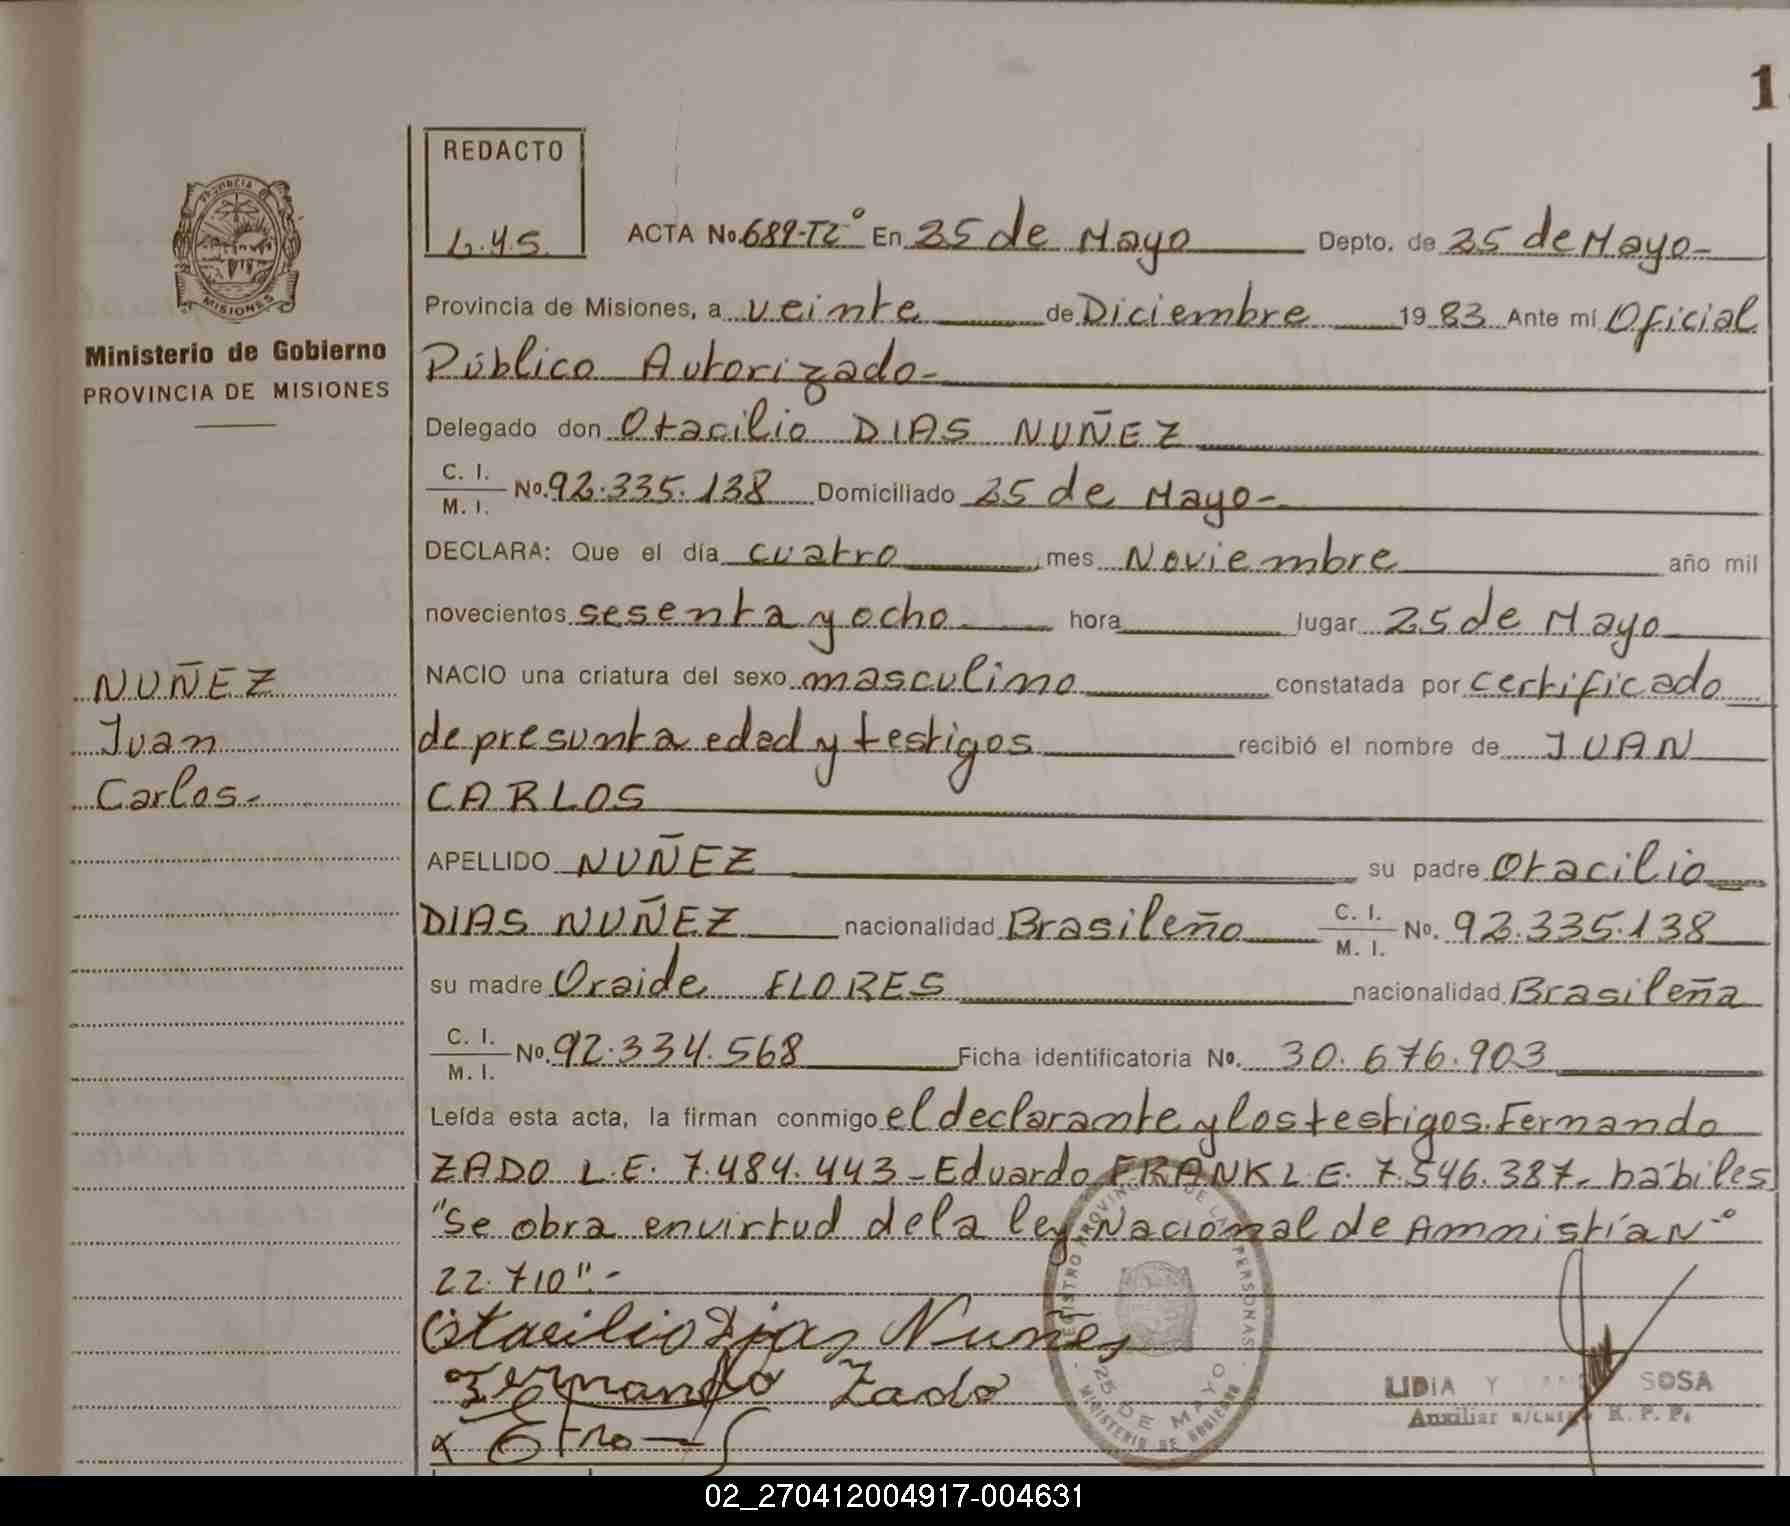 1
REDACTO
L.Y.S.
ACTA No. 689-Tº2 En 25 de Mayo Depto. de 25 de Mayo-
Provincia de Misiones, a veinte de Diciembre 19 83 Ante mí Oficial
Público Autorizado-
Delegado don Otacilio DIAS NUÑEZ
C. I.
M. I.
No. 92.335.138 Domiciliado 25 de Mayo-
DECLARA: Que el día cuatro mes Noviembre año mil
novecientos sesenta y ocho hora lugar 25 de Mayo
NACIO una criatura del sexo masculino constatada por certificado
de presunta edad y testigos recibió el nombre de JUAN
CARLOS
APELLIDO NUÑEZ su padre Otacilio
DIAS NUÑEZ nacionalidad Brasileño C. I. M. I. No. 92.335.138
su madre Oraide FLORES nacionalidad Brasileña
C. I.
M. I.
No. 92.334.568 Ficha identificatoria No. 30.676.903
Leída esta acta, la firman conmigo el declarante y los testigos Fernando
ZADO L.E. 7.484.443-Eduardo FRANK L.E. 7.546.387- hábiles
"Se obra en virtud de la ley Nacional de Amnistía Nº
22.710"-
Otacilio Dias Nuñes
Fernando Zado
LIDIA Y SOSA
Auxiliar R. P. P.
REGISTRO PROVINCIAL DE LAS PERSONAS
25 DE MAYO
MINISTERIO DE GOBIERNO
PROVINCIA
MISIONES
Ministerio de Gobierno
PROVINCIA DE MISIONES
NUÑEZ
Juan
Carlos-
02_270412004917-004631